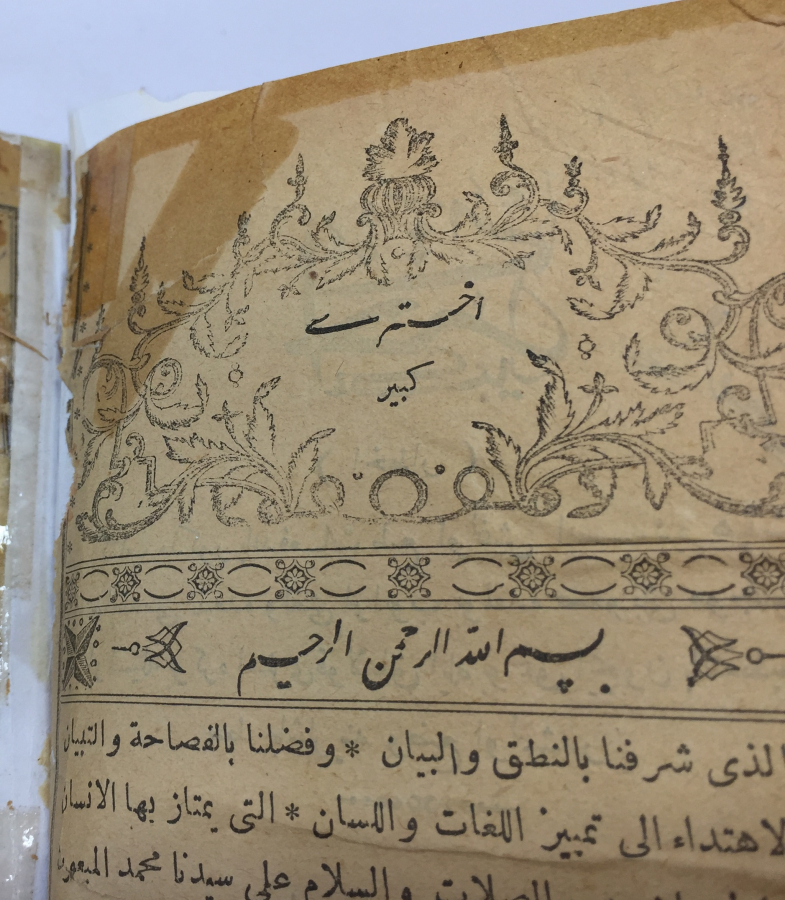 اخترى
كبير
بسم الله الرحمن الرحيم
الذى شرفنا بالنطق والبيان * وفضلنا بالفصاحة والتبيان
الاهتداء الى تمييز اللغات واللسان * التى يمتاز بها الانسان
والسلام على سيدنا محمد